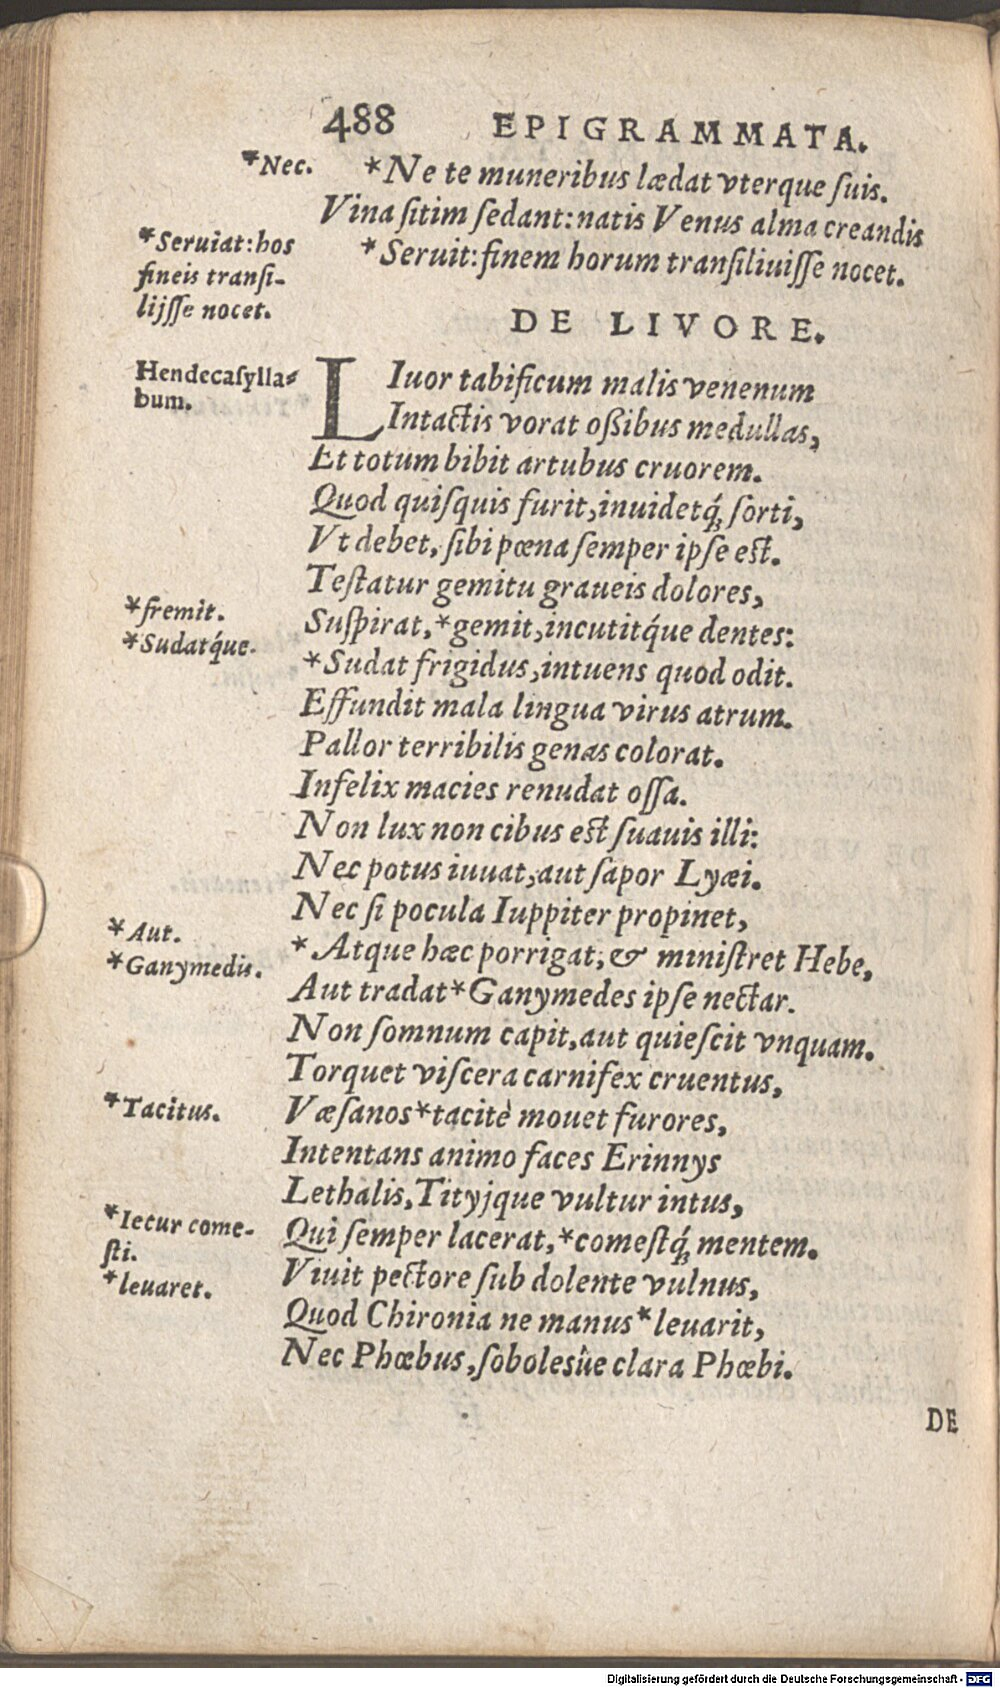 488 EPIGRAMMATA.
*Nec.
*Ne te muneribus lædat vterque ſuis.
Vina ſitim ſedant: natis Venus alma creandis
*Seruiat: hos
fineis tranſi-
lijſſe nocet.
*Seruit: finem horum tranſiliuiſſe nocet.
DE LIVORE.
Hendecaſylla-
bum.
LIuor tabificum malis venenum
Intactis vorat oßibus medullas,
Et totum bibit artubus cruorem.
Quod quiſquis furit, inuidetq́; ſorti,
Vt debet, ſibi pœna ſemper ipſe est.
Teſtatur gemitu graueis dolores,
*fremit.
Suſpirat, *gemit, incutitq́ue dentes:
*Sudatq́ue.
*Sudat frigidus, intuens quod odit.
Effundit mala lingua virus atrum.
Pallor terribilis genas colorat.
Infelix macies renudat oſſa.
Non lux non cibus est ſuauis illi:
Nec potus iuuat, aut ſapor Lyæi.
Nec ſi pocula Iuppiter propinet,
*Aut.
*Atque hæc porrigat, & miniſtret Hebe,
*Ganymedis.
Aut tradat *Ganymedes ipſe nectar.
Non ſomnum capit, aut quieſcit vnquam.
Torquet viſcera carnifex cruentus,
*Tacitus.
Væſanos *tacitè mouet furores,
Intentans animo faces Erinnys
Lethalis, Tityjque vultur intus,
*Iecur come-
ſti.
Qui ſemper lacerat, *comeſtq́; mentem.
Viuit pectore ſub dolente vulnus,
*leuaret.
Quod Chironia ne manus *leuarit,
Nec Phœbus, ſobolesûe clara Phœbi.
DE
Digitalisierung gefördert durch die Deutsche Forschungsgemeinschaft - DFG